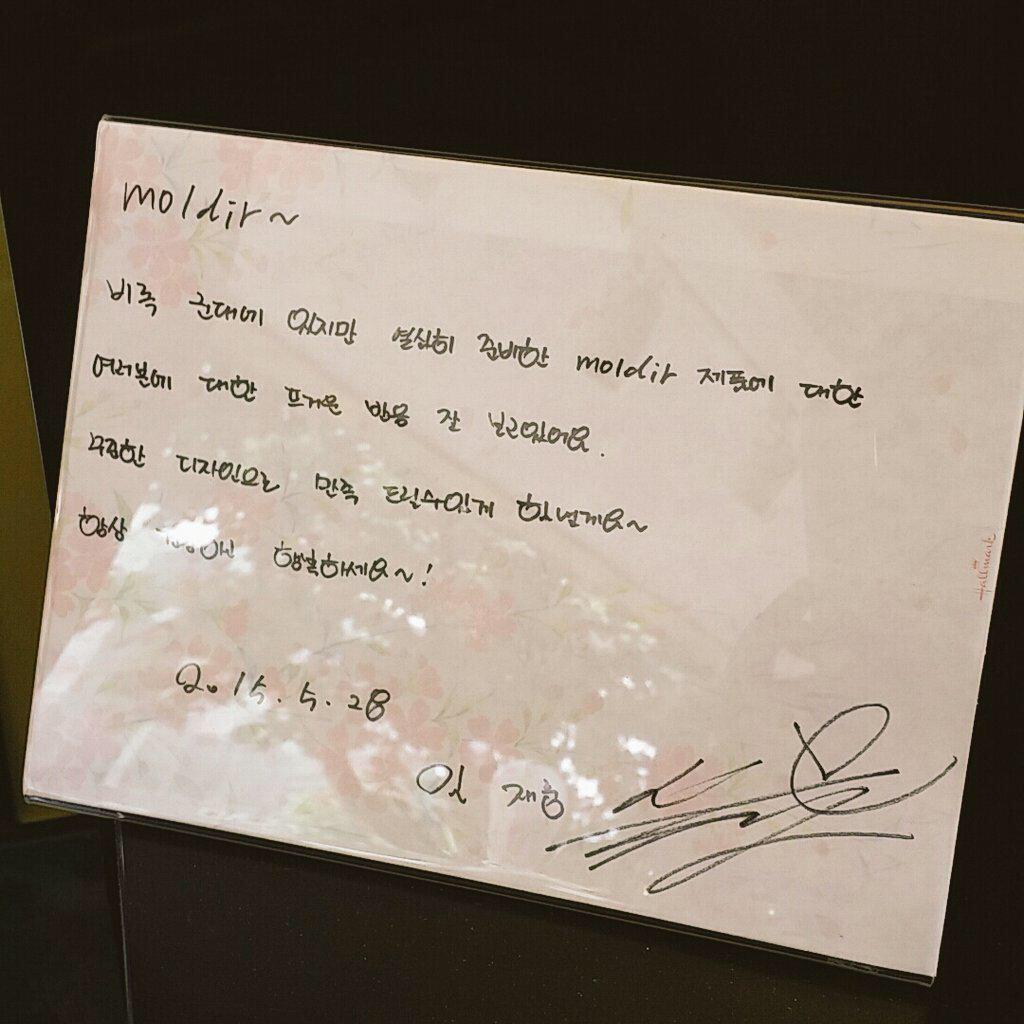 moldir~
비록 군대에 있지만 열심히 준비한 moldir 제품에 대한
여러분에 대한 뜨거운 반응 잘 보고있어요.
무접한 디자인으로 만족 드릴수있게 하넌게요~
항상 행복하세요~!
2015.5.28
재중
Hallmark